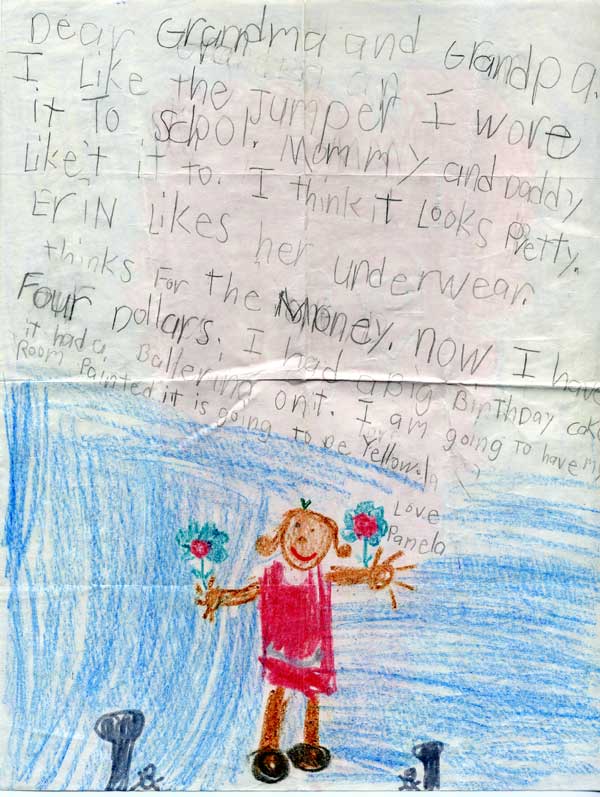 Dear Grandma and Grandpa.
I Like the Jumper I wore
it To School. Mommy and Daddy
Like't it to. I think it Looks Pretty.
ERiN Likes her underwear.
thinks For the Money. now I have
Four Dollars. I had a Big Birthday cake
it had a Ballerina on t. I am going to have my
Room Painted it is going to be Yellow.
Love
Pamela